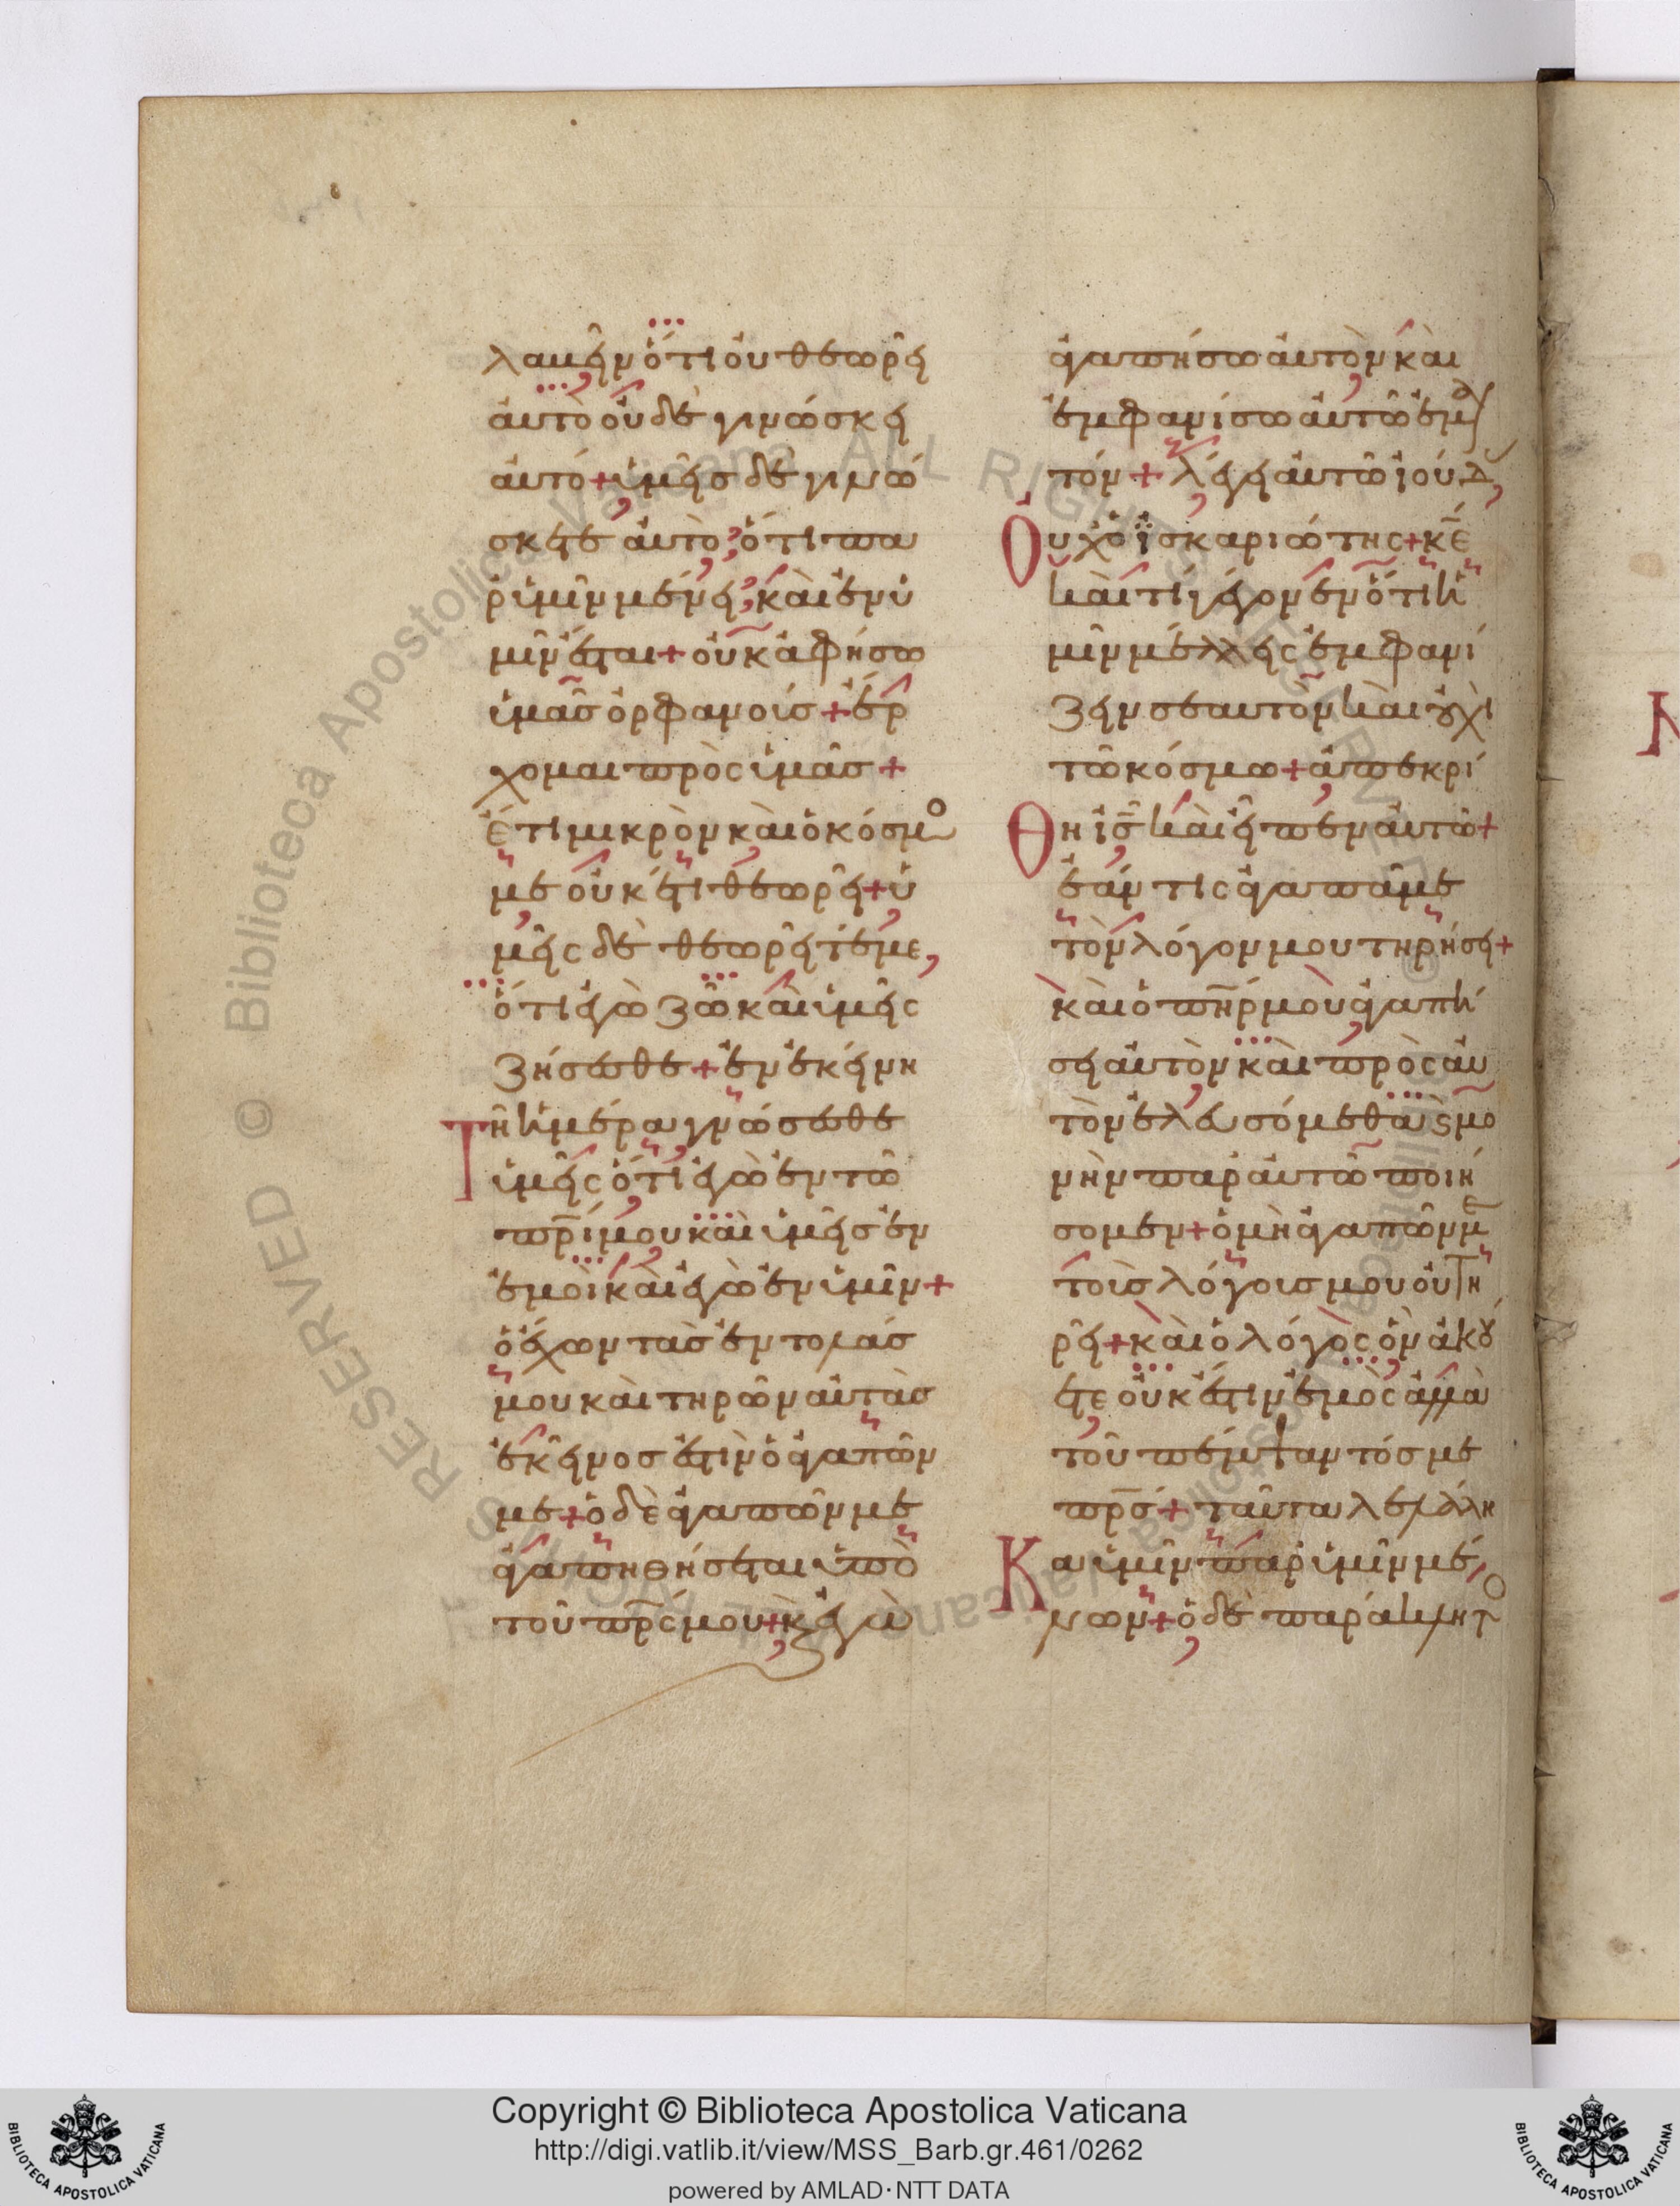 λαμεῖν ὅτι οὐ θεωρεῖ
αὐτὸ οὐδὲ γινώσκει
αὐτό + ὑμεῖς δὲ γινώ
σκετε αὐτὸ, ὅτι πα
ρ' ὑμῖν μένει, καὶ ἐν ὑ
μῖν ἔσται + οὐκ ἀφήσω
ὑμᾶς ὀρφανοίς + ἔρ
χομαι πρὸς ὑμᾶς +
Ἔτι μικρὸν καὶ ὁ κόσμο
με οὐκ έτι θεωρεῖ + ὑ
μεῖς δὲ θεωρεῖτέ με,
ὅτι ἐγὼ ζῶ καὶ ὑμεῖς
ζήσεσθε + ἐν ἐκείνη
Τῆ ἡμέρα γνώσεσθε
ὑμεῖς ὅτι ἐγὼ ἐν τῶ
πρι μου καὶ ὑμεῖς ἐν
ἐμοὶ καὶ ἐγὼ ἐν ὑμῖν +
ὁ ἔχων τὰς ἐντολάς
μου καὶ τηρῶν αὐτὰς
ἐκεῖνος ἐστὶν ὁ ἀγαπῶν
με + ὁ δὲ ἀγαπῶν με
ἀγαπηθήσεται ὑπὸ
τοῦ πρς μου + κ ἐγὼ
ἀγαπήσω αὐτὸν καὶ
ἐμφανίσω αὐτῶ ἐμαυ
τόν + λέγει αὐτῶ ἰούδ
Οὐχ ὁ ἰσκαριώτης + κε
καὶ τί γέγονεν ὅτι ἡ
μῖν μέλλεις ἐμφανί
ζειν σεαυτὸν καὶ οὐχὶ
τῶ κόσμω + ἀπεκρί
Θη ις καὶ εἶπεν αὐτῶ +
ἐάν τις ἀγαπᾶ με
τὸν λόγον μου τηρήσει +
καὶ ὁ πηρ μου ἀγαπή
σει αὐτὸν καὶ πρὸς αὐ
τὸν ἐλευσόμεθα κὶ μο
νὴν παρ' αὐτῶ ποιή
σομεν + ὁ μὴ ἀγαπῶν με
τοὺς λόγους μου οὐ τη
ρεῖ + καὶ ὁ λόγος ὃν ἀκού
ετε οὐκ ἔστιν ἐμὸς ἀλλὰ
τοῦ πέμψαντός με
πρς + ταῦτα λελάλη
Κα ὑμῖν παρ' ὑμῖν μέ
νων + ὁ δὲ παράκλητο
Copyright © Biblioteca Apostolica Vaticana
http://digi.vatlib.it/view/MSS_Barb.gr.461/0262
powered by AMLAD·NTT DATA